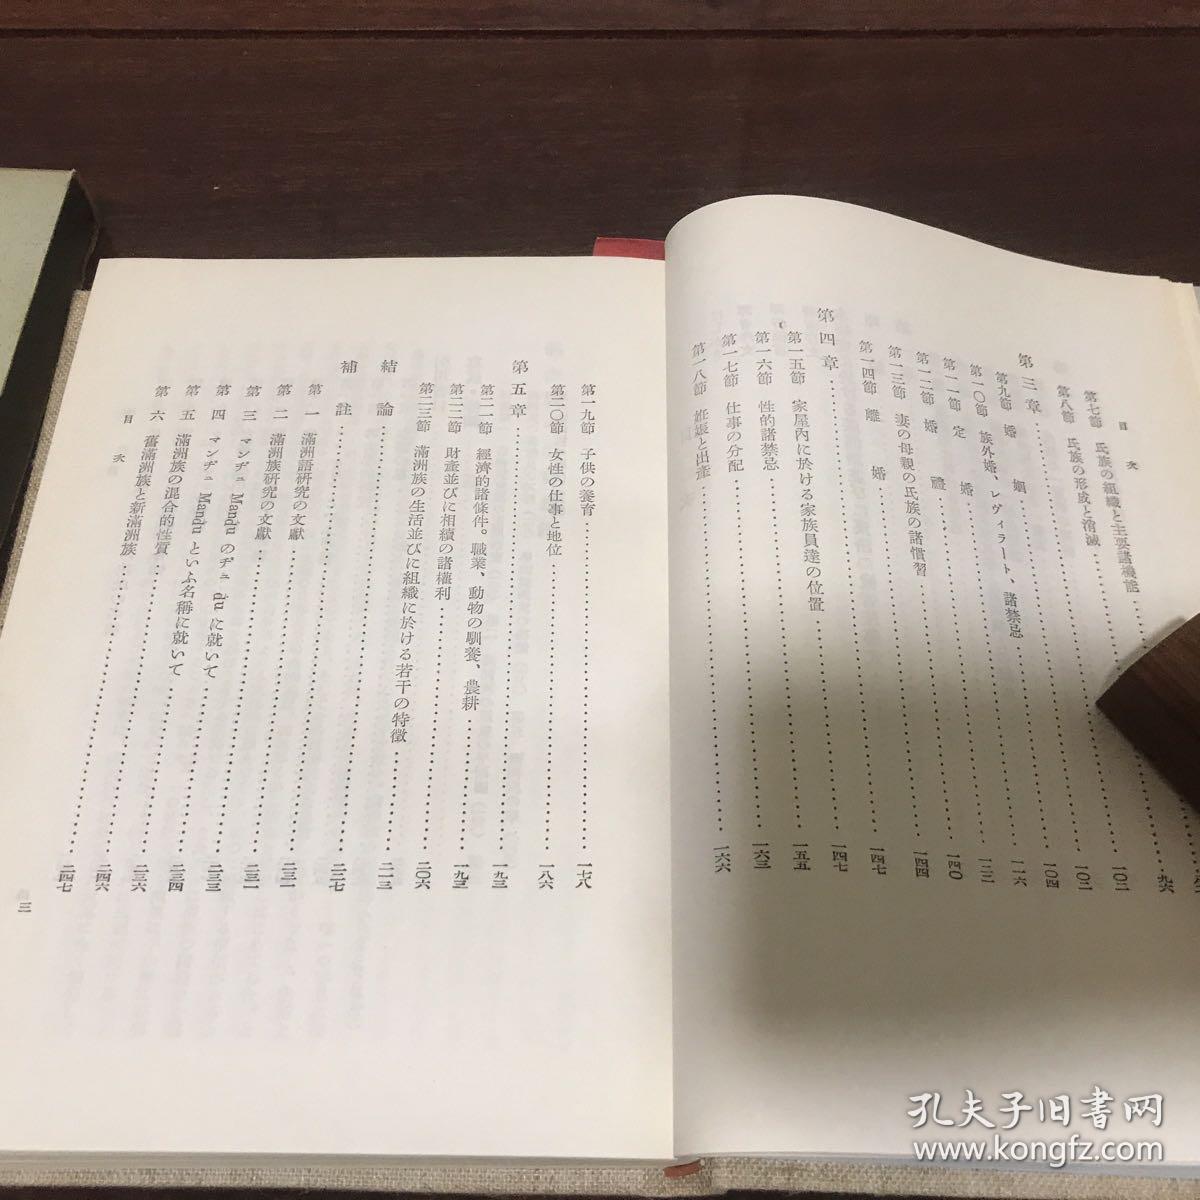 目次
第七節 氏族の組織と主要諸機能
第八節 氏族の形成と消滅……九六
第三章……一〇二
第九節 婚姻……一〇二
第一〇節 族外婚、レヴィラート、諸禁忌……一〇四
第一一節 定婚……一一六
第一二節 婚禮……一二二
第一三節 妻の母親の氏族の諸慣習……一四〇
第一四節 離婚……一四四
第四章……一四七
第一五節 家屋內に於ける家族員達の位置……一四七
第一六節 性的諸禁忌……一五五
第一七節 仕事の分配……一六三
第一八節 姙娠と出產……一六六
第一九節 子供の養育……一七八
第二〇節 女性の仕事と地位……一八六
第五章……一九三
第二一節 經濟的諸條件。職業、動物の馴養、農耕……一九三
第二二節 財產並びに相續の諸權利……二〇六
第二三節 滿洲族の生活並びに組織に於ける若干の特徵……二一三
結論……二二七
補註……二三一
第一 滿洲語硏究の文獻……二三一
第二 滿洲族硏究の文獻……二三三
第三 マンヂュ Mandu のヂュ du に就いて……二三四
第四 マンヂュ Mandu といふ名稱に就いて……二三六
第五 滿洲族の混合的性質……二四六
第六 舊滿洲族と新滿洲族……二四七
目次
三
孔夫子旧书网
www.kongfz.com